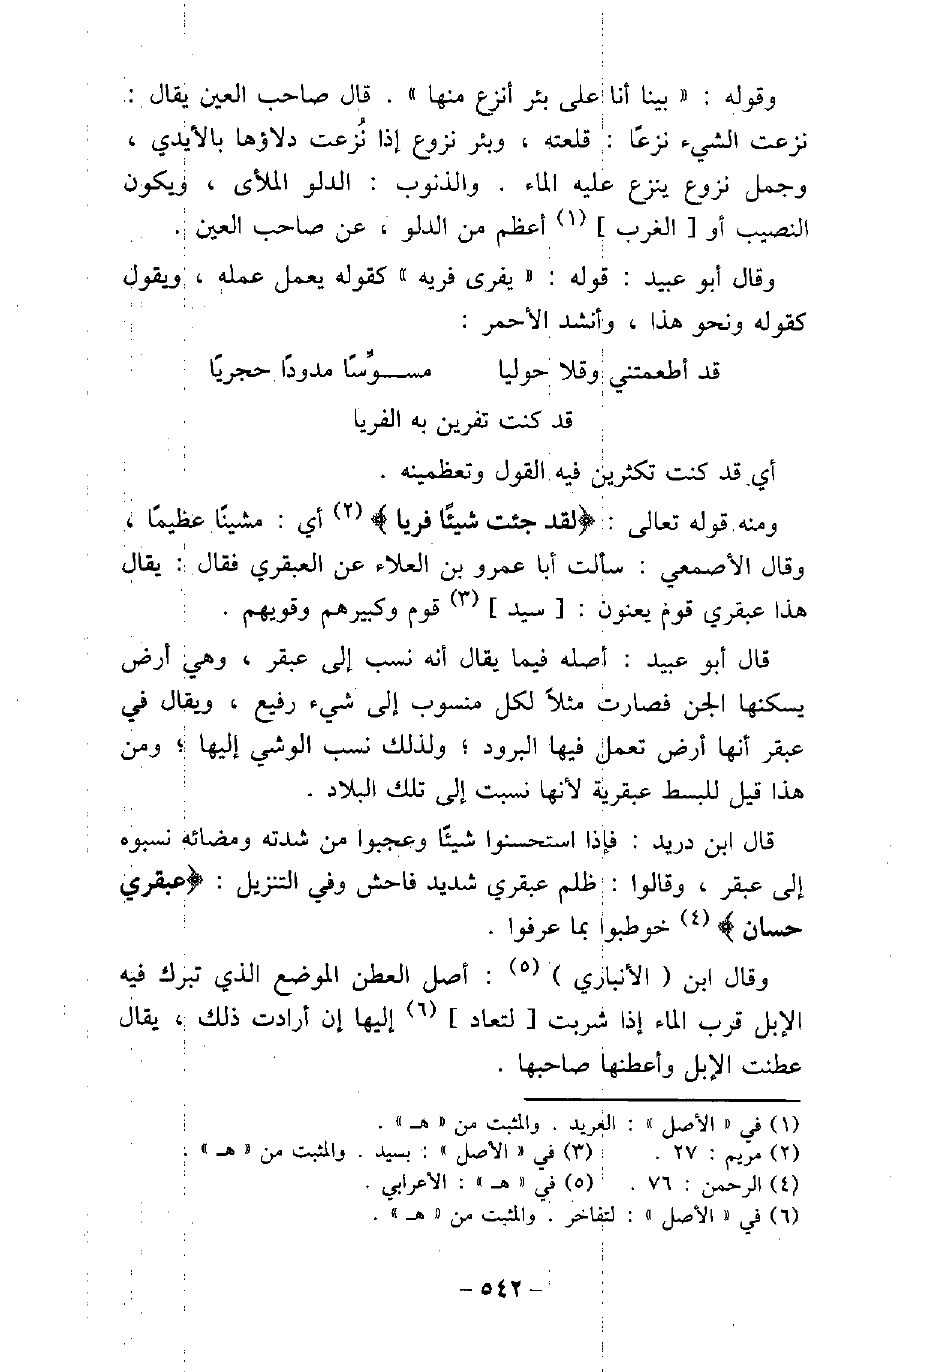 وقوله : « بينا أنا على بئر أنزع منها » . قال صاحب العين يقال :
نزعت الشيء نزعًا : قلعته ، وبئر نزوع إذا نُزعت دلاؤها بالأيدي ،
وجمل نزوع ينزع عليه الماء . والذنوب : الدلو الملأى ، ويكون
النصيب أو [ الغرب ] (١) أعظم من الدلو ، عن صاحب العين .
وقال أبو عبيد : قوله : « يفرى فريه » كقوله يعمل عمله ، ويقول
كقوله ونحو هذا ، وأنشد الأحمر :
قد أطعمتني وقلا حوليا مســـوِّسًا مدودًا حجريًا
قد كنت تفرين به الفريا
أي قد كنت تكثرين فيه القول وتعظمينه .
ومنه قوله تعالى : ﴿لقد جئت شيئًا فريا ﴾ (٢) أي : مشينًا عظيمًا ،
وقال الأصمعي : سألت أبا عمرو بن العلاء عن العبقري فقال : يقال
هذا عبقري قوم يعنون : [ سيد ] (٣) قوم وكبيرهم وقويهم .
قال أبو عبيد : أصله فيما يقال أنه نسب إلى عبقر ، وهي أرض
يسكنها الجن فصارت مثلاً لكل منسوب إلى شيء رفيع ، ويقال في
عبقر أنها أرض تعمل فيها البرود ؛ ولذلك نسب الوشي إليها ؛ ومن
هذا قيل للبسط عبقرية لأنها نسبت إلى تلك البلاد .
قال ابن دريد : فإذا استحسنوا شيئًا وعجبوا من شدته ومضائه نسبوه
إلى عبقر ، وقالوا : ظلم عبقري شديد فاحش وفي التنزيل : ﴿عبقري
حسان ﴾ (٤) خوطبوا بما عرفوا .
وقال ابن ( الأنباري ) (٥) : أصل العطن الموضع الذي تبرك فيه
الإبل قرب الماء إذا شربت [ لتعاد ] (٦) إليها إن أرادت ذلك ، يقال
عطنت الإبل وأعطنها صاحبها .
(١) في « الأصل » : الغريد . والمثبت من « هـ » .
(٢) مريم : ٢٧ . (٣) في « الأصل » : بسيد . والمثبت من « هـ » .
(٤) الرحمن : ٧٦ . (٥) في « هـ » : الأعرابي .
(٦) في « الأصل » : لتفاخر . والمثبت من « هـ » .
- ٥٤٢ -